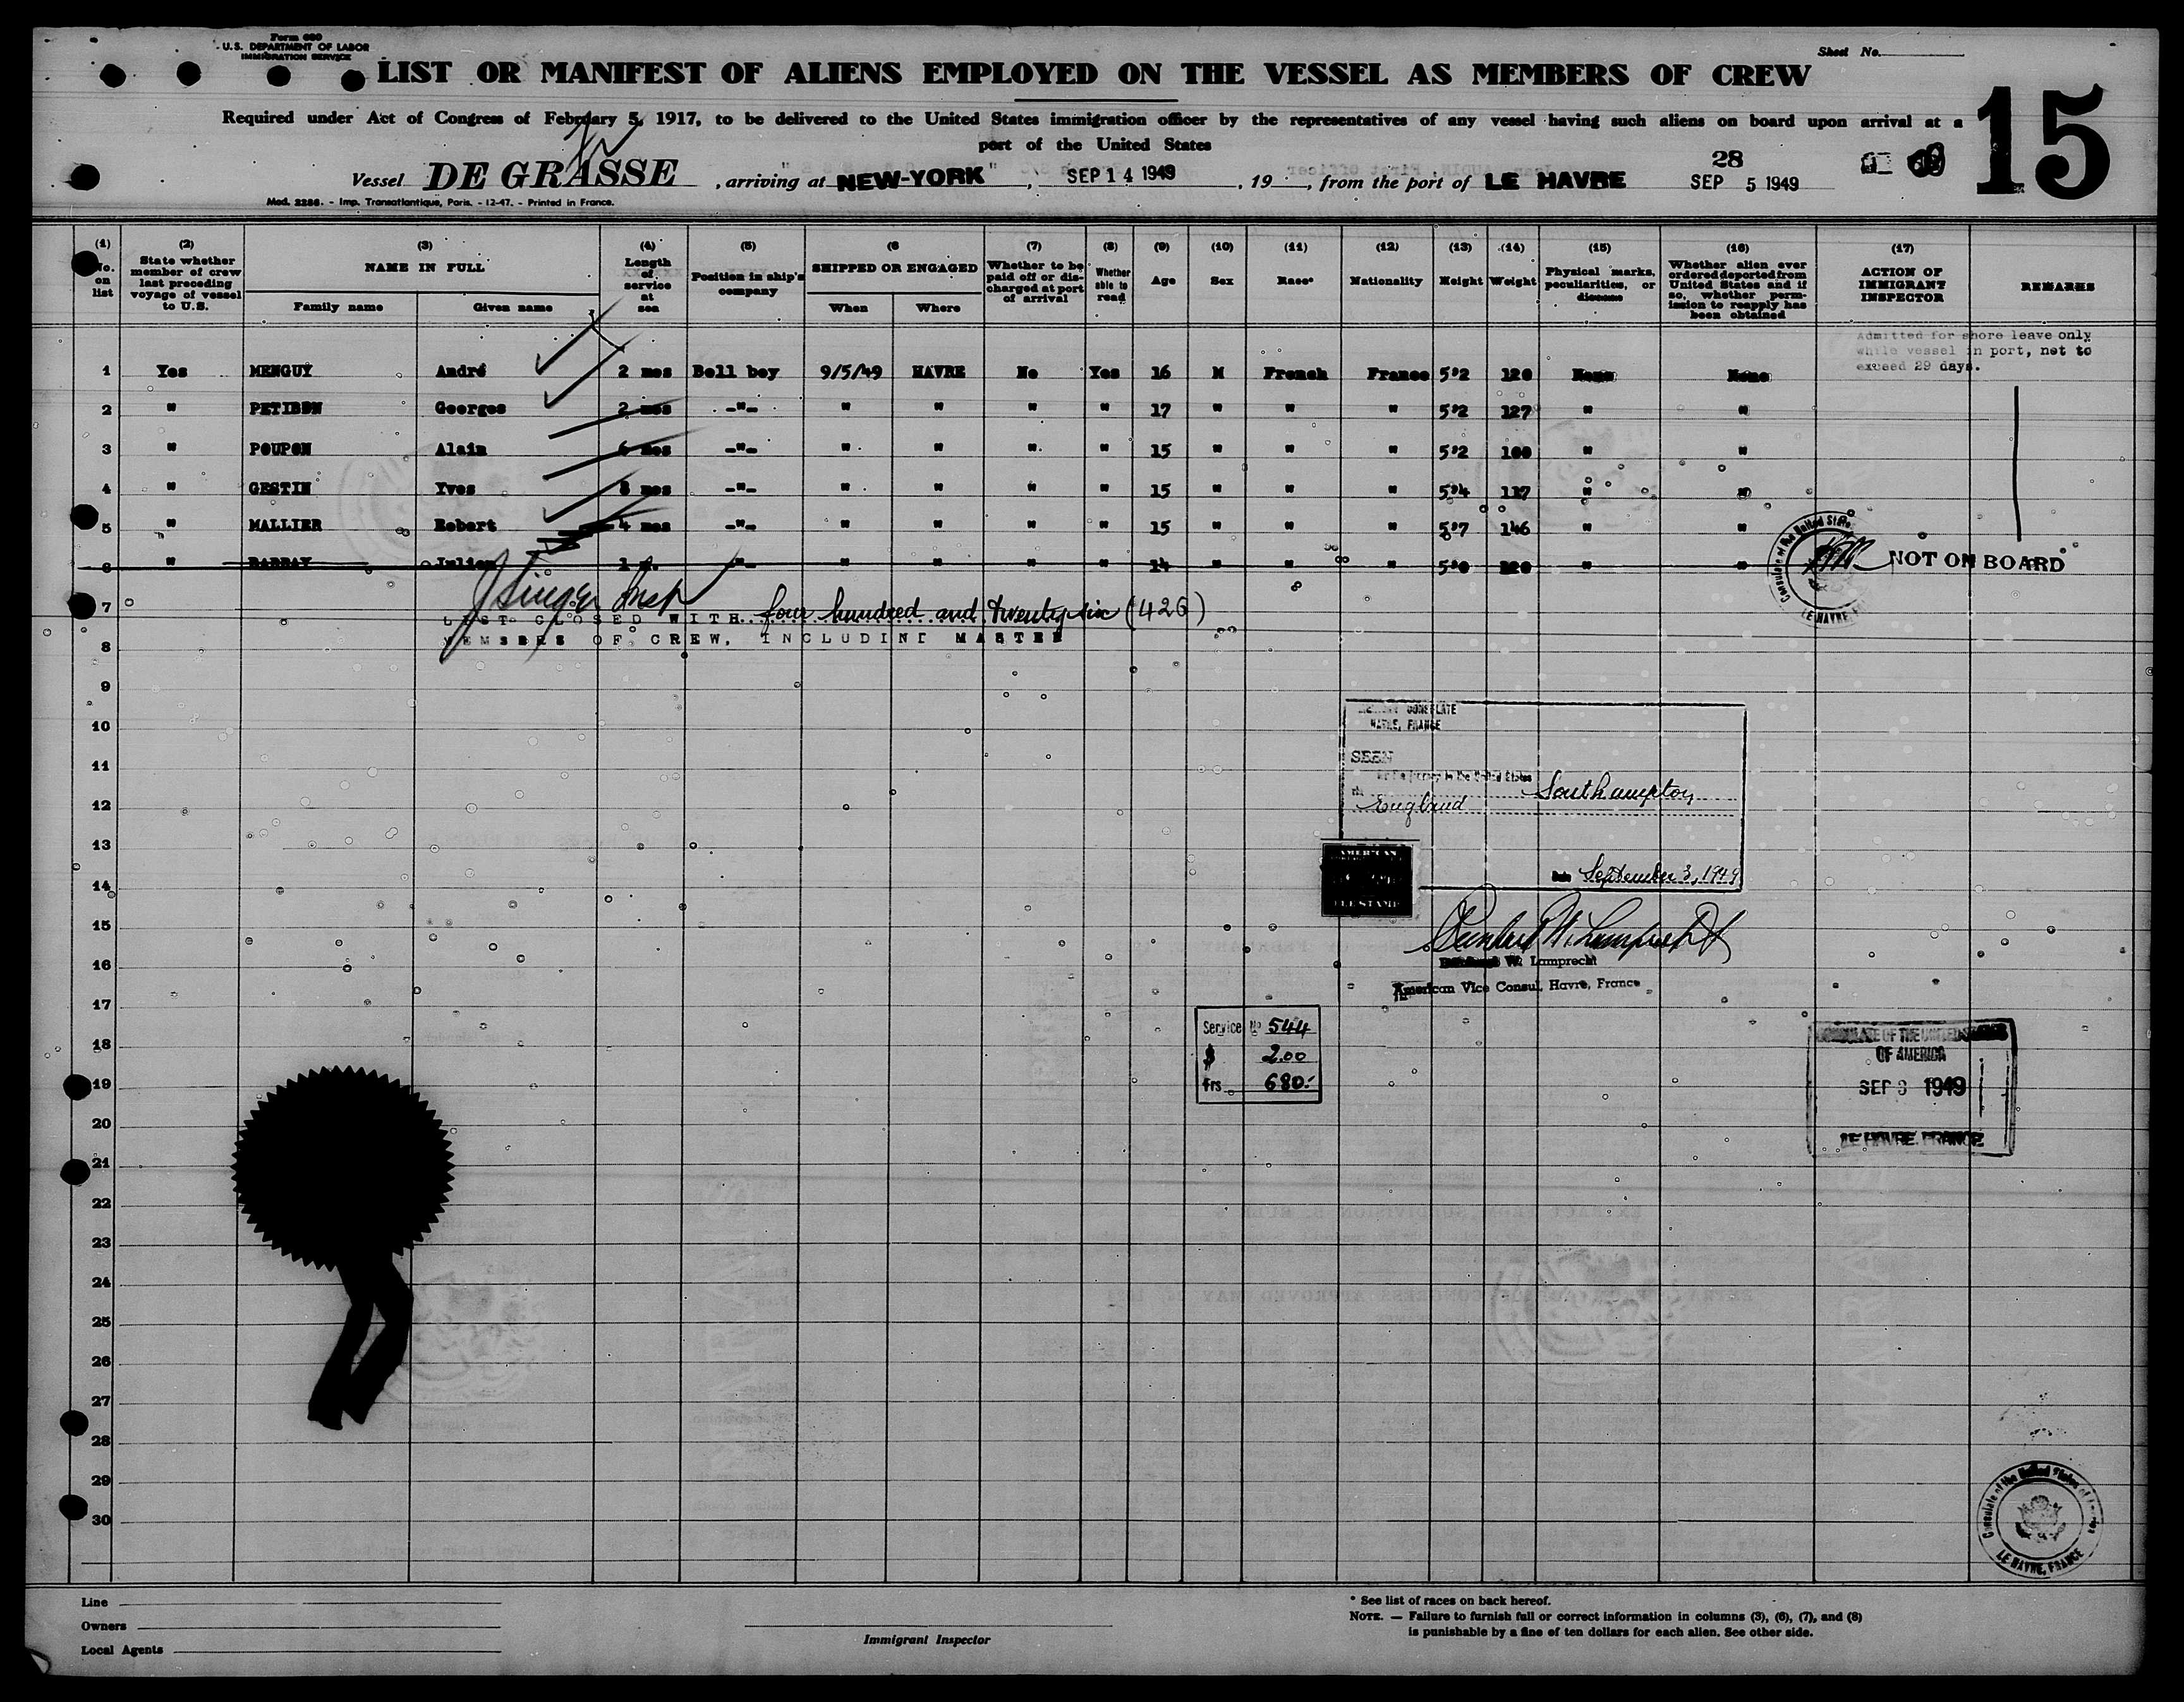 Form 680
U.S. DEPARTMENT OF LABOR
IMMIGRATION SERVICE
Sheet No.
LIST OR MANIFEST OF ALIENS EMPLOYED ON THE VESSEL AS MEMBERS OF CREW
15
Required under Act of Congress of February 5, 1917, to be delivered to the United States immigration officer by the representatives of any vessel having such aliens on board upon arrival at a
port of the United States
28
Vessel DE GRASSE, arriving at NEW-YORK, SEP 14 1949, 19, from the port of LE HAVRE SEP 5 1949
Mod. 2286. - Imp. Transatlantique, Paris. - 12-47. - Printed in France.
(1) No. on list
(2) State whether member of crew last preceding voyage of vessel to U.S.
(3) NAME IN FULL Family name Given name
(4) Length of service at sea
(5) Position in ship's company
(6 SHIPPED OR ENGAGED When Where
(7) Whether to be paid off or discharged at port of arrival
(8) Whether able to read
(9) Age
(10) Sex
(11) Race*
(12) Nationality
(13) Height
(14) Weight
(15) Physical marks, peculiarities, or disease
(16) Whether alien ever ordered deported from United States and if so, whether permission to reapply has been obtained
(17) ACTION OF IMMIGRANT INSPECTOR
REMARKS
Admitted for shore leave only
while vessel in port, not to
exceed 29 days.
1 Yes MENGUY André 2 mos Bell boy 9/5/49 HAVRE No Yes 16 M French France 5'2 120 None None
2 " PETIBON Georges 2 mos -"- " " " " 17 " " " 5'2 127 " "
3 " POUPON Alain 6 mos -"- " " " " 15 " " " 5'2 100 " "
4 " GESTIN Yves 8 mos -"- " " " " 15 " " " 5'4 117 " "
5 " MALLIER Robert 4 mos -"- " " " " 15 " " " 5'7 146 " "
6 " Julien " " " " 14 " " " 5'0 120 " " NOT ON BOARD
Consulate of the United States
LE HAVRE
7
LIST CLOSED WITH four hundred and twenty six (426)
MEMBERS OF CREW, INCLUDING MASTER
8
9
10
HAVRE, FRANCE
SEEN
11
Southampton
12
England
13
14
AMERICAN
Date September 3, 1949
15
16
W. Lamprecht
American Vice Consul, Havre, France
17
Service No 544
$ 2.00
frs 680.-
18
CONSULATE OF THE UNITED STATES
OF AMERICA
SEP 3 1949
LE HAVRE, FRANCE
19
20
21
22
23
24
25
26
27
28
29
30
Consulate of the United States of America
LE HAVRE, FRANCE
Line
Owners
Local Agents
Immigrant Inspector
* See list of races on back hereof.
NOTE. — Failure to furnish full or correct information in columns (3), (6), (7), and (8)
is punishable by a fine of ten dollars for each alien. See other side.